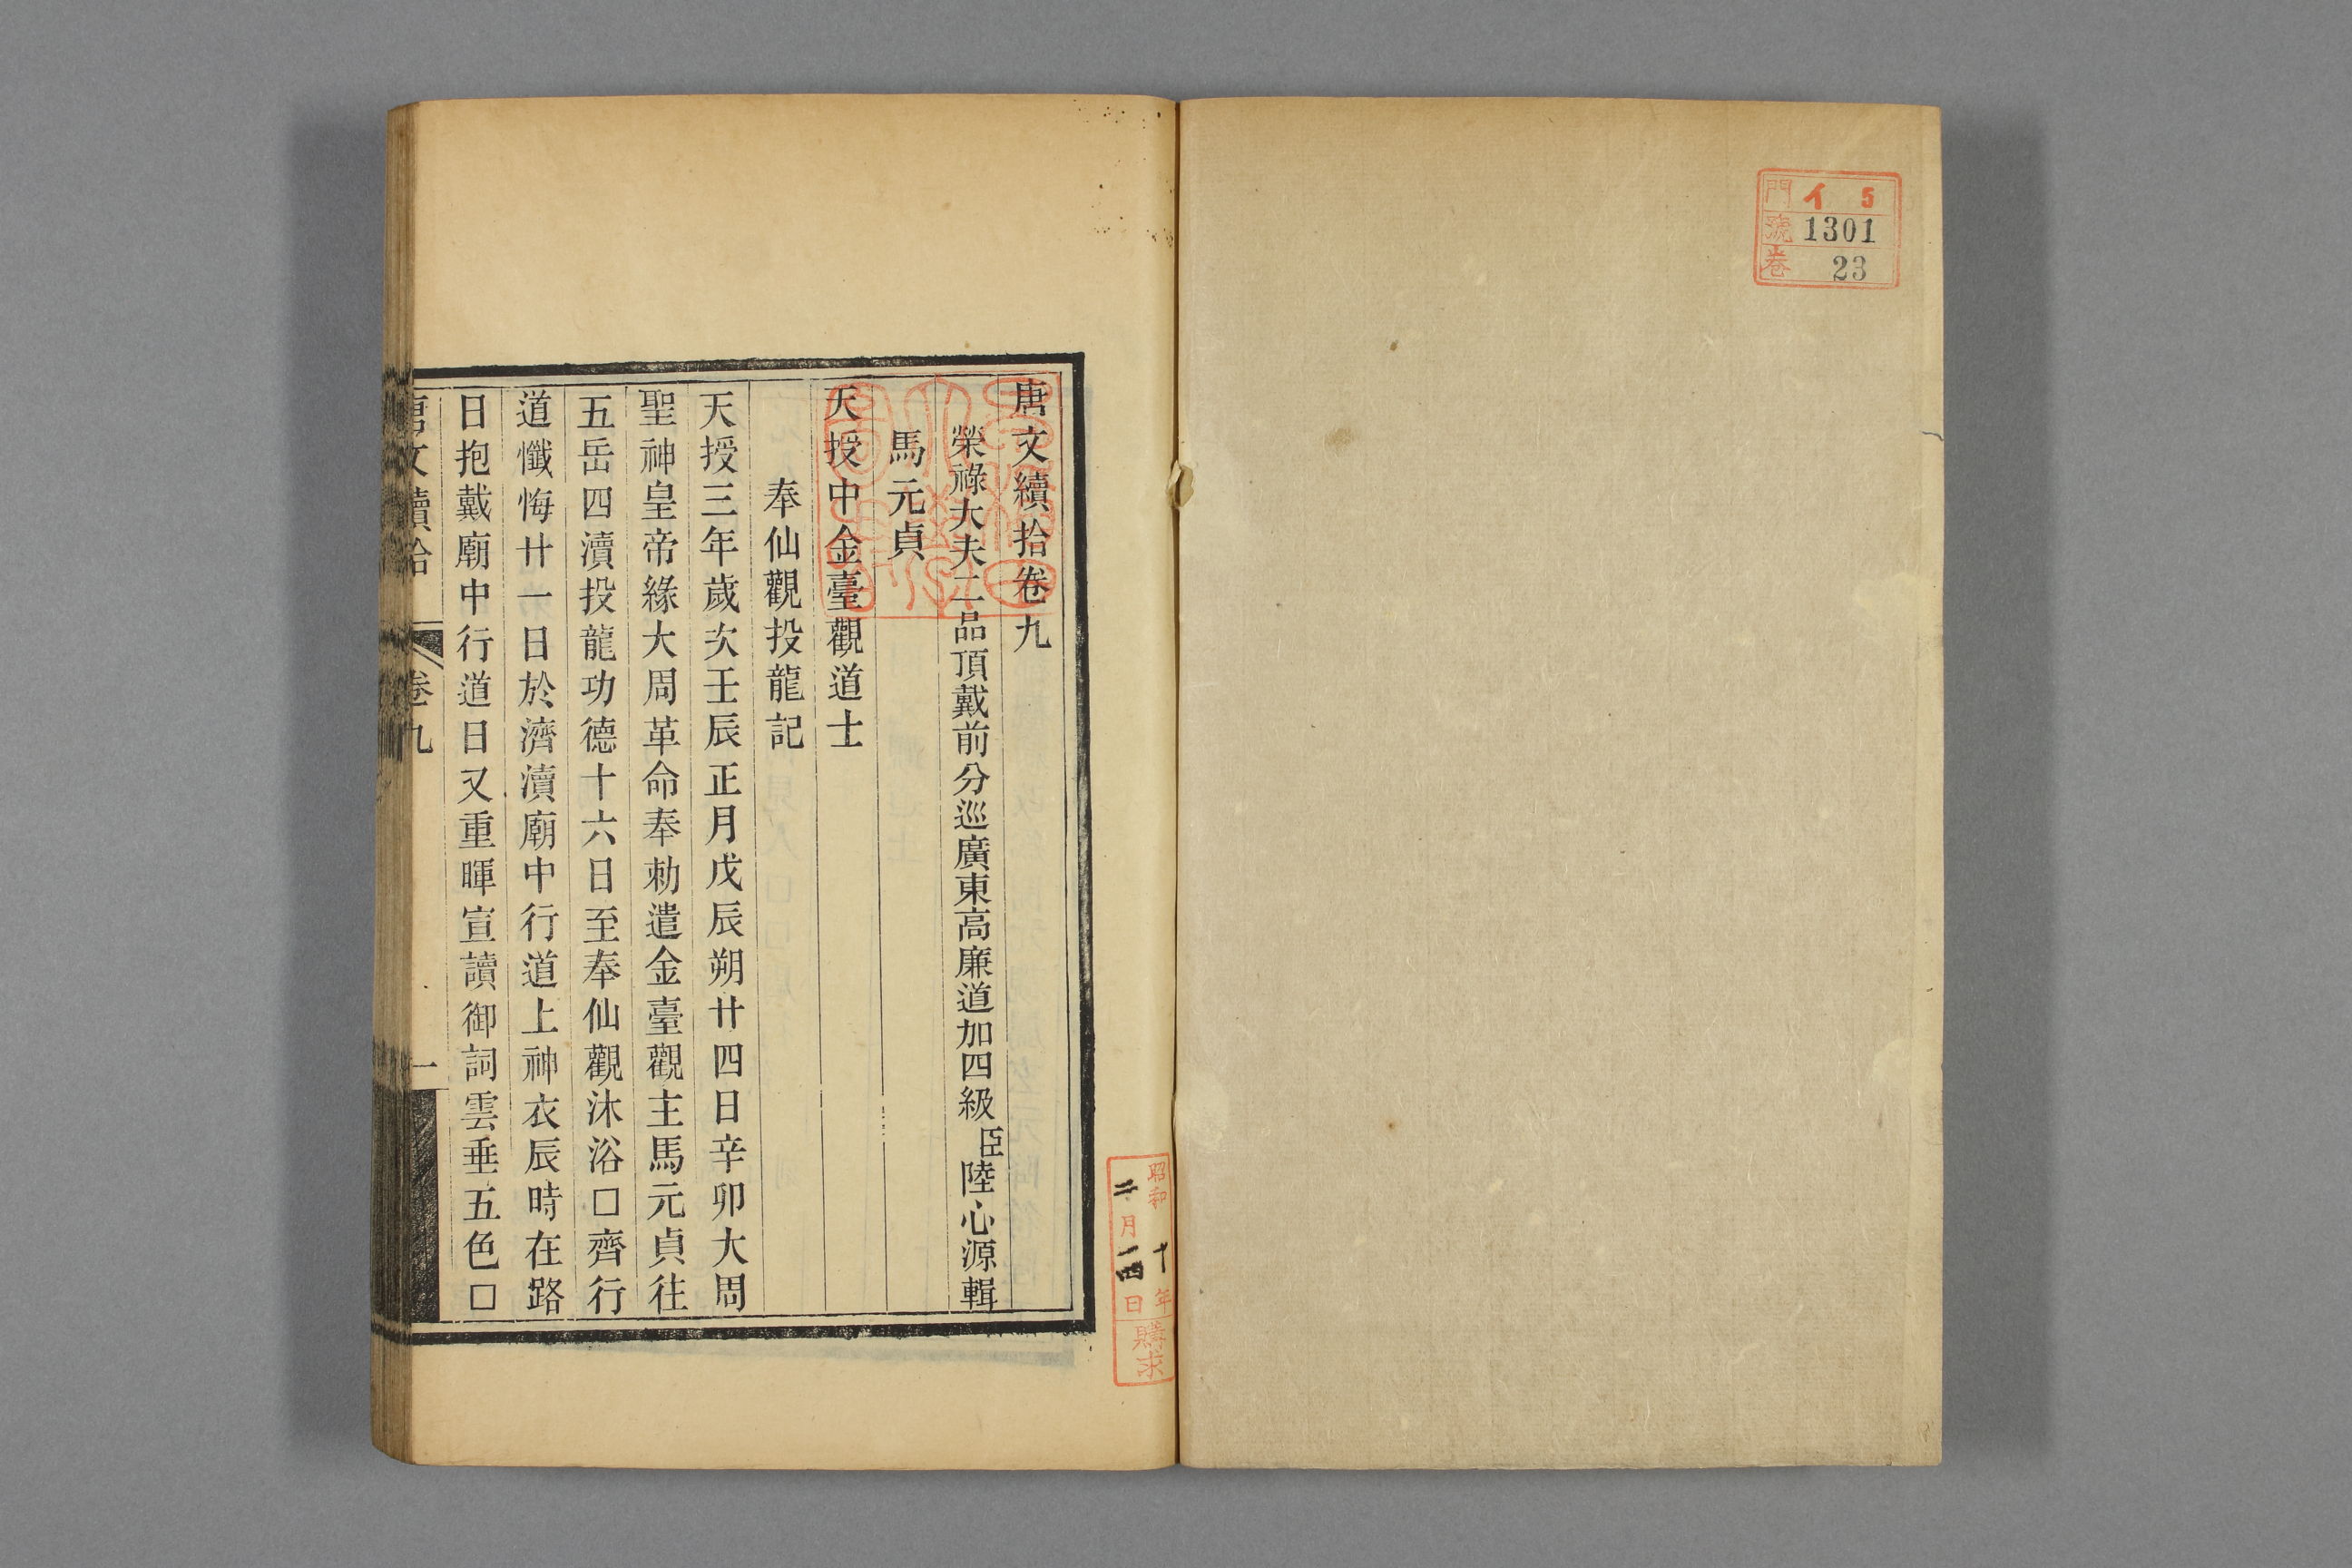 門 イ 5
號 1301
卷 23
唐文續拾卷九
榮祿大夫二品頂戴前分巡廣東高廉道加四級臣陸心源輯
馬元貞
天授中金臺觀道士
奉仙觀投龍記
天授三年歲次壬辰正月戊辰朔廿四日辛卯大周
聖神皇帝緣大周革命奉勑遣金臺觀主馬元貞往
五岳四瀆投龍功德十六日至奉仙觀沐浴□齊行
道懺悔廿一日於濟瀆廟中行道上神衣辰時在路
日抱戴廟中行道日又重暉宣讀御詞雲垂五色□
唐文續拾 卷九 一
昭和十年
二月一四日
購求